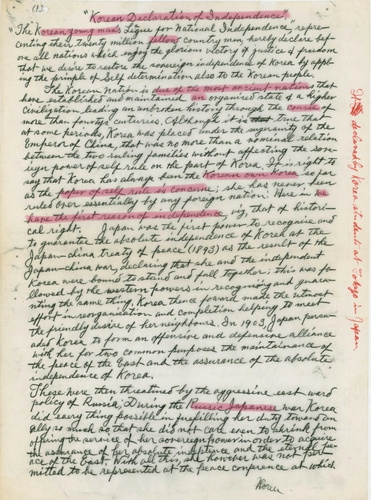 (13)
"Korean Declaration of Independence".
"The Korean young man's Ligue for National Independence, repre-
centing their twenty million fellow country men, hereby declare bef-
ore all nations which enjoy the glorious victory of justice & freedom
that we desire to restore the sovereign independence of Korea by appl-
ing the prinsple of Self determination also to the Korean people.
The Korean Nation is due of the most ancient nations that
have established and maintained an organised state of a higher
civilisation, leading an unbroken history through the course of
more than fourty centuries. Although it is true that
at some periods, Korea was placed under the sugerainty of the
Emperor of China, that was no more than a nominal relation
between the two ruling families without affecting the sov-
reign power of self rule on the part of Korea. It is right to
say that Korea has always been the Korean own Korea so far
as the power of self rule is concerne; she has never been
ruled over essentially by any foreign nation. Here in we
have the first reason of independence, viz, that of histori-
cal right. Japan was the first power to recognise and
to guarantee the absolute independence of Korea at the
Japan-china treaty of peace (1893) as the result of the
Japan-china war, declaring that she and the independent
Korea were bound to stand and fall together; this was fo-
llowed by the western powers in recognising and guaran-
nting the same thing. Korea thence foward made the utmost
effort in reorganisation and completion helping to meet
the friendly desire of her neighbours. In 1903, Japan persu-
aded Korea to form an offensive and defensive alliance
with her for two common purposes the maintainance of
the peace of the East and the assurance of the absolute
independence of Korea.
These were then threatened by the aggressive east ward
policy of Russia. During the Russic Japanese war Korea
did every thing possible in fulfilling her duty toward an
ally so much so that she did not care even to shrink from
offering the service of her sovereign honor in order to acquire
the assurance of her absolute and the eternal pe-
ace of the East. With all this, she however was not per-
mitted to be represented at the peace conference at which
Korea
declared by Korean students at Tokyo in Japan